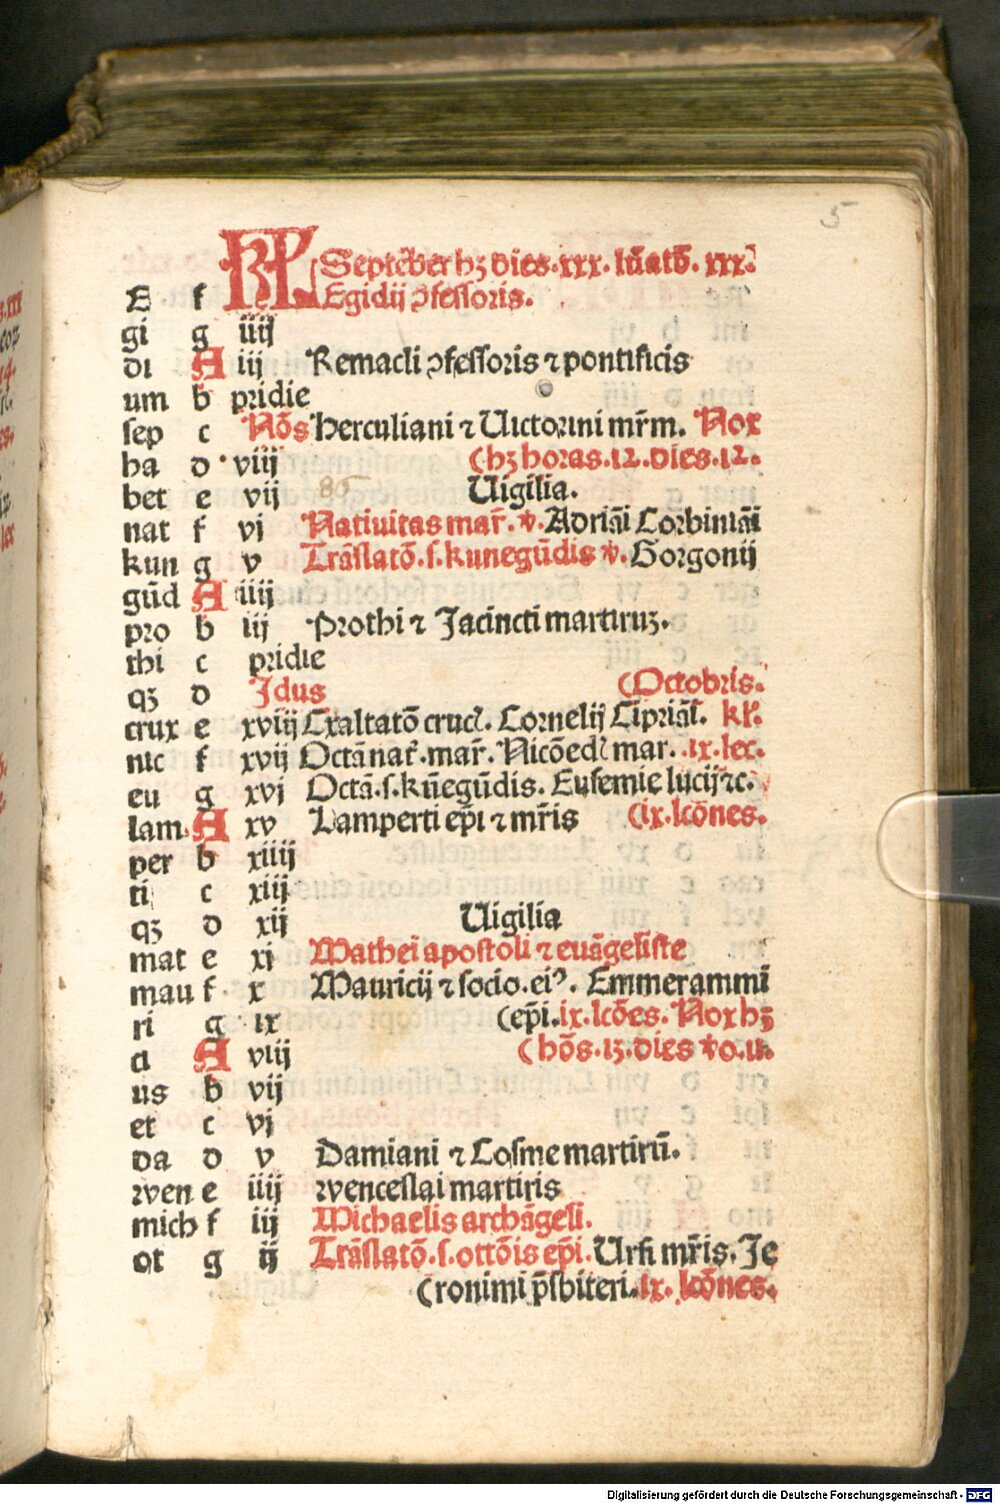 5
KL Septēber hꝫ dies. xxx. lūatō. xxx.
E f Egidij ꝯfessoris.
gi g iiij
di A iij Remacli ꝯfessoris ⁊ pontificis
um b pridie
sep c Nōs Herculiani ⁊ Uictorini mr̄m. Nox
ha d viij (hꝫ horas. 12. dies. 12.
bet e vij 86 Uigilia.
nat f vi Natiuitas mar̄. ꝟ. Adriāi Corbiniāi
kun g v Trāslatō. s. kunegūdis ꝟ. Gorgonij
gūd A iiij
pro b iij Prothi ⁊ Jacincti martiruꝫ.
thi c pridie
qꝫ d Jdus (Octobris.
crux e xviij Exaltatō cruc̄. Cornelij Cipriāi. kl̄.
nic f xvij Octā nat̄. mar̄. Nicōed̄ mar. ix. lec.
eu g xvi Octā. s. kūegūdis. Eufemie lucij ⁊c.
lam A xv Lamperti ep̄i ⁊ mr̄is (ix. lcōnes.
per b xiiij
ti c xiij
qꝫ d xij Uigilia
mat e xi Mathei apostoli ⁊ euāgeliste
mau f x Mauricij ⁊ socio. eiꝰ. Emmerammi
ri g ix (ep̄i. ix. lcōes. Nox hꝫ
ci A viij (hōs. 13. dies ꝟo. 11.
us b vij
et c vi
da d v Damiani ⁊ Cosme martirū.
wen e iiij wenceslai martiris
mich f iij Michaelis archāgeli.
ot g ij Trāslatō. s. ottōis ep̄i. Ursi mr̄is. Je
(ronimi p̄sbiteri. ix. lcōnes.
Digitalisierung gefördert durch die Deutsche Forschungsgemeinschaft - DFG